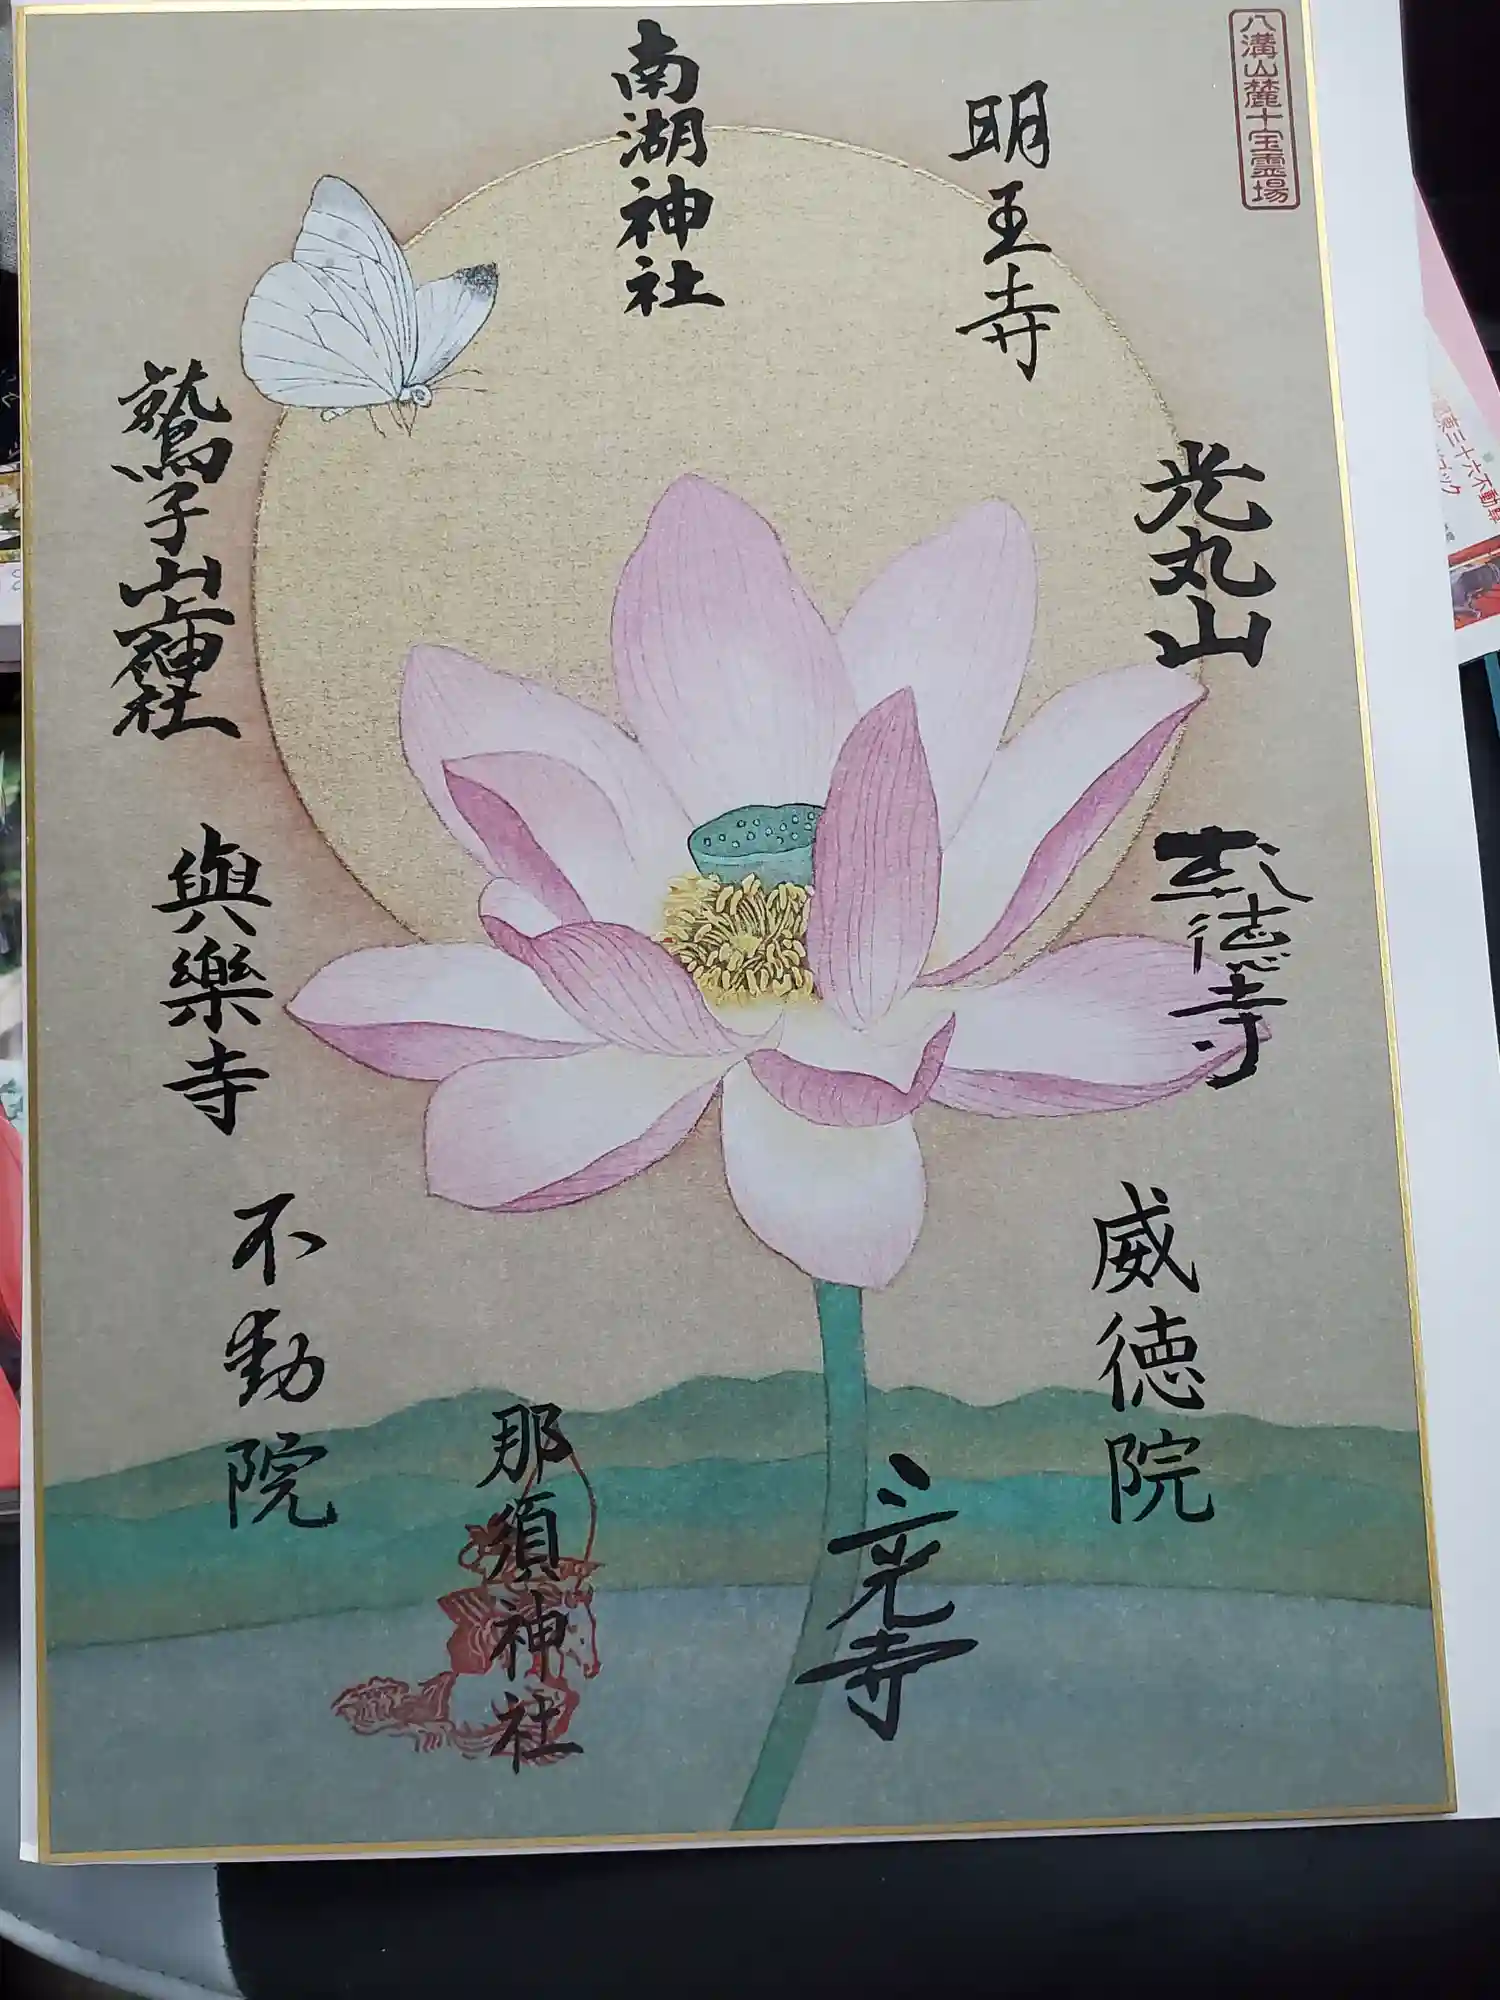 八溝山麓十宝霊場
明王寺
光丸山
徳寺
威徳院
三光寺
南湖神社
鷲子山上神社
與樂寺
不動院
那須神社
三十六不動尊